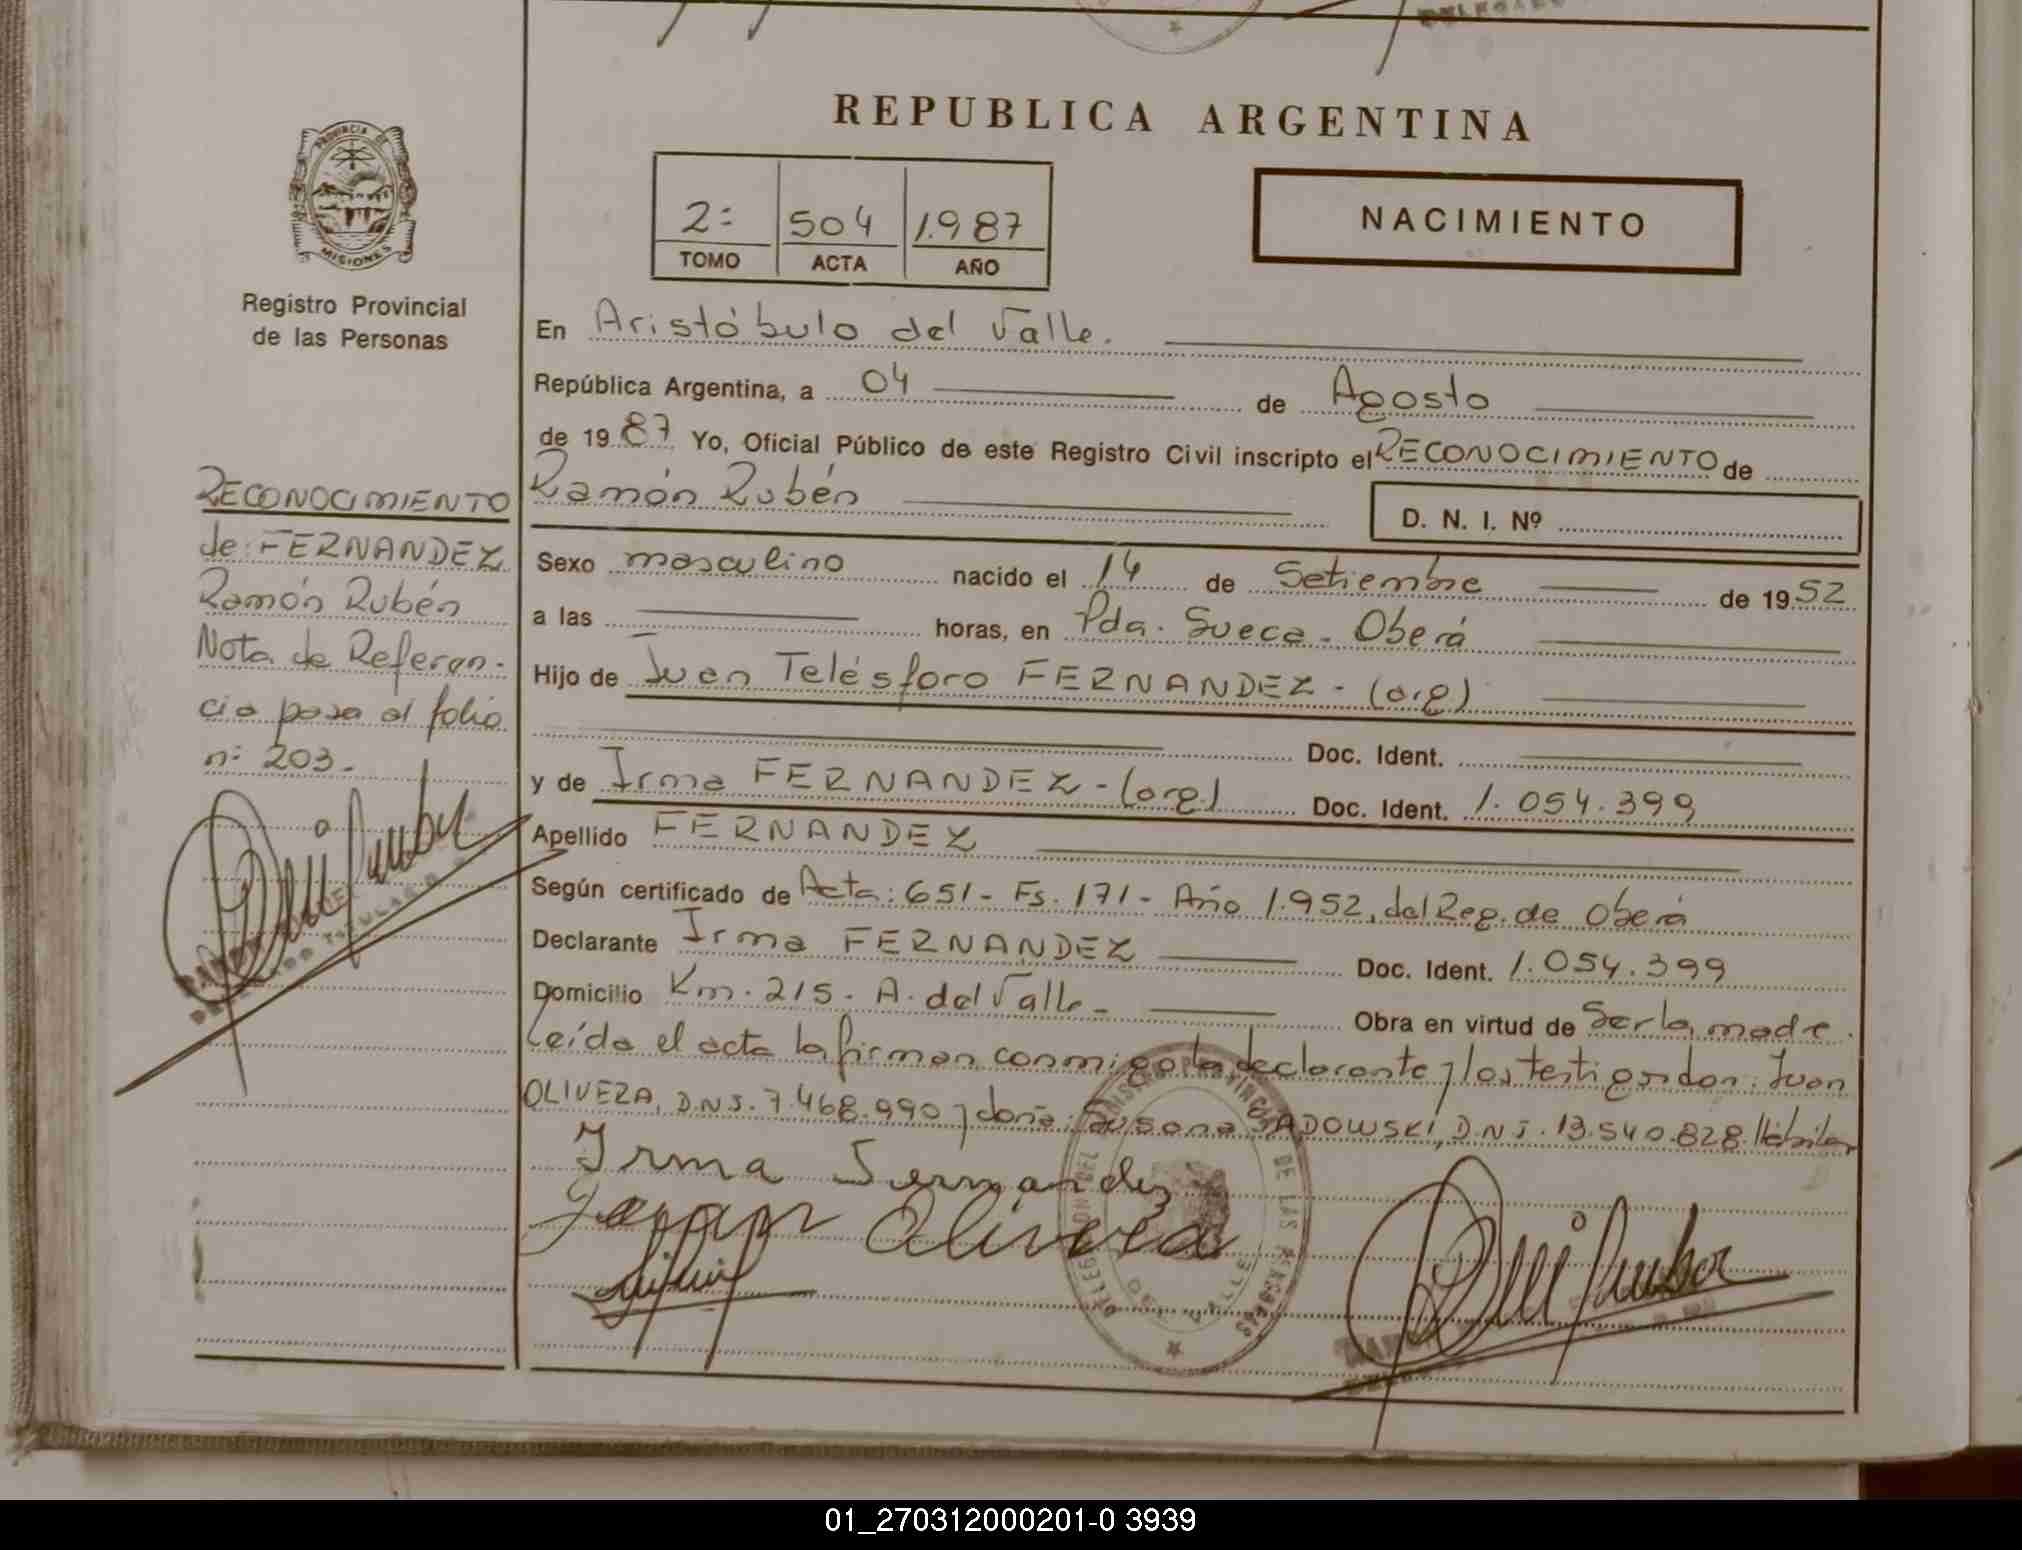 REPUBLICA ARGENTINA
PROVINCIA DE
MISIONES
Registro Provincial
de las Personas
2: 504 1.987
TOMO ACTA AÑO
NACIMIENTO
En Aristóbulo del Valle.
República Argentina, a 04 de Agosto
de 1987 Yo, Oficial Público de este Registro Civil inscripto el RECONOCIMIENTO de
Ramón Rubén
D. N. I. Nº
Sexo masculino nacido el 14 de Setiembre de 1952
a las horas, en Pda. Sueca - Oberá
Hijo de Juan Telésforo FERNANDEZ - (arg)
Doc. Ident.
y de Irma FERNANDEZ - (arg.) Doc. Ident. 1.054.399
Apellido FERNANDEZ
Según certificado de Acta: 651 - Fs. 171 - Año 1.952, del Reg. de Oberá
Declarante Irma FERNANDEZ Doc. Ident. 1.054.399
Domicilio Km. 215 - A. del Valle - Obra en virtud de Ser la madre.
Leída el acta la firman conmigo la declarante y los testigos don: Juan
OLIVERA, D.N.I. 7.468.990 y doña: Susana SADOWSKI, D.N.I. 13.540.828. Hábiles
Irma Fernandez
Olivera
RECONOCIMIENTO
de: FERNANDEZ
Ramón Rubén
Nota de Referen-
cia pasa al folio
n: 203 -
DE LAS PERSONAS
DEL VALLE
01_270312000201-0 3939